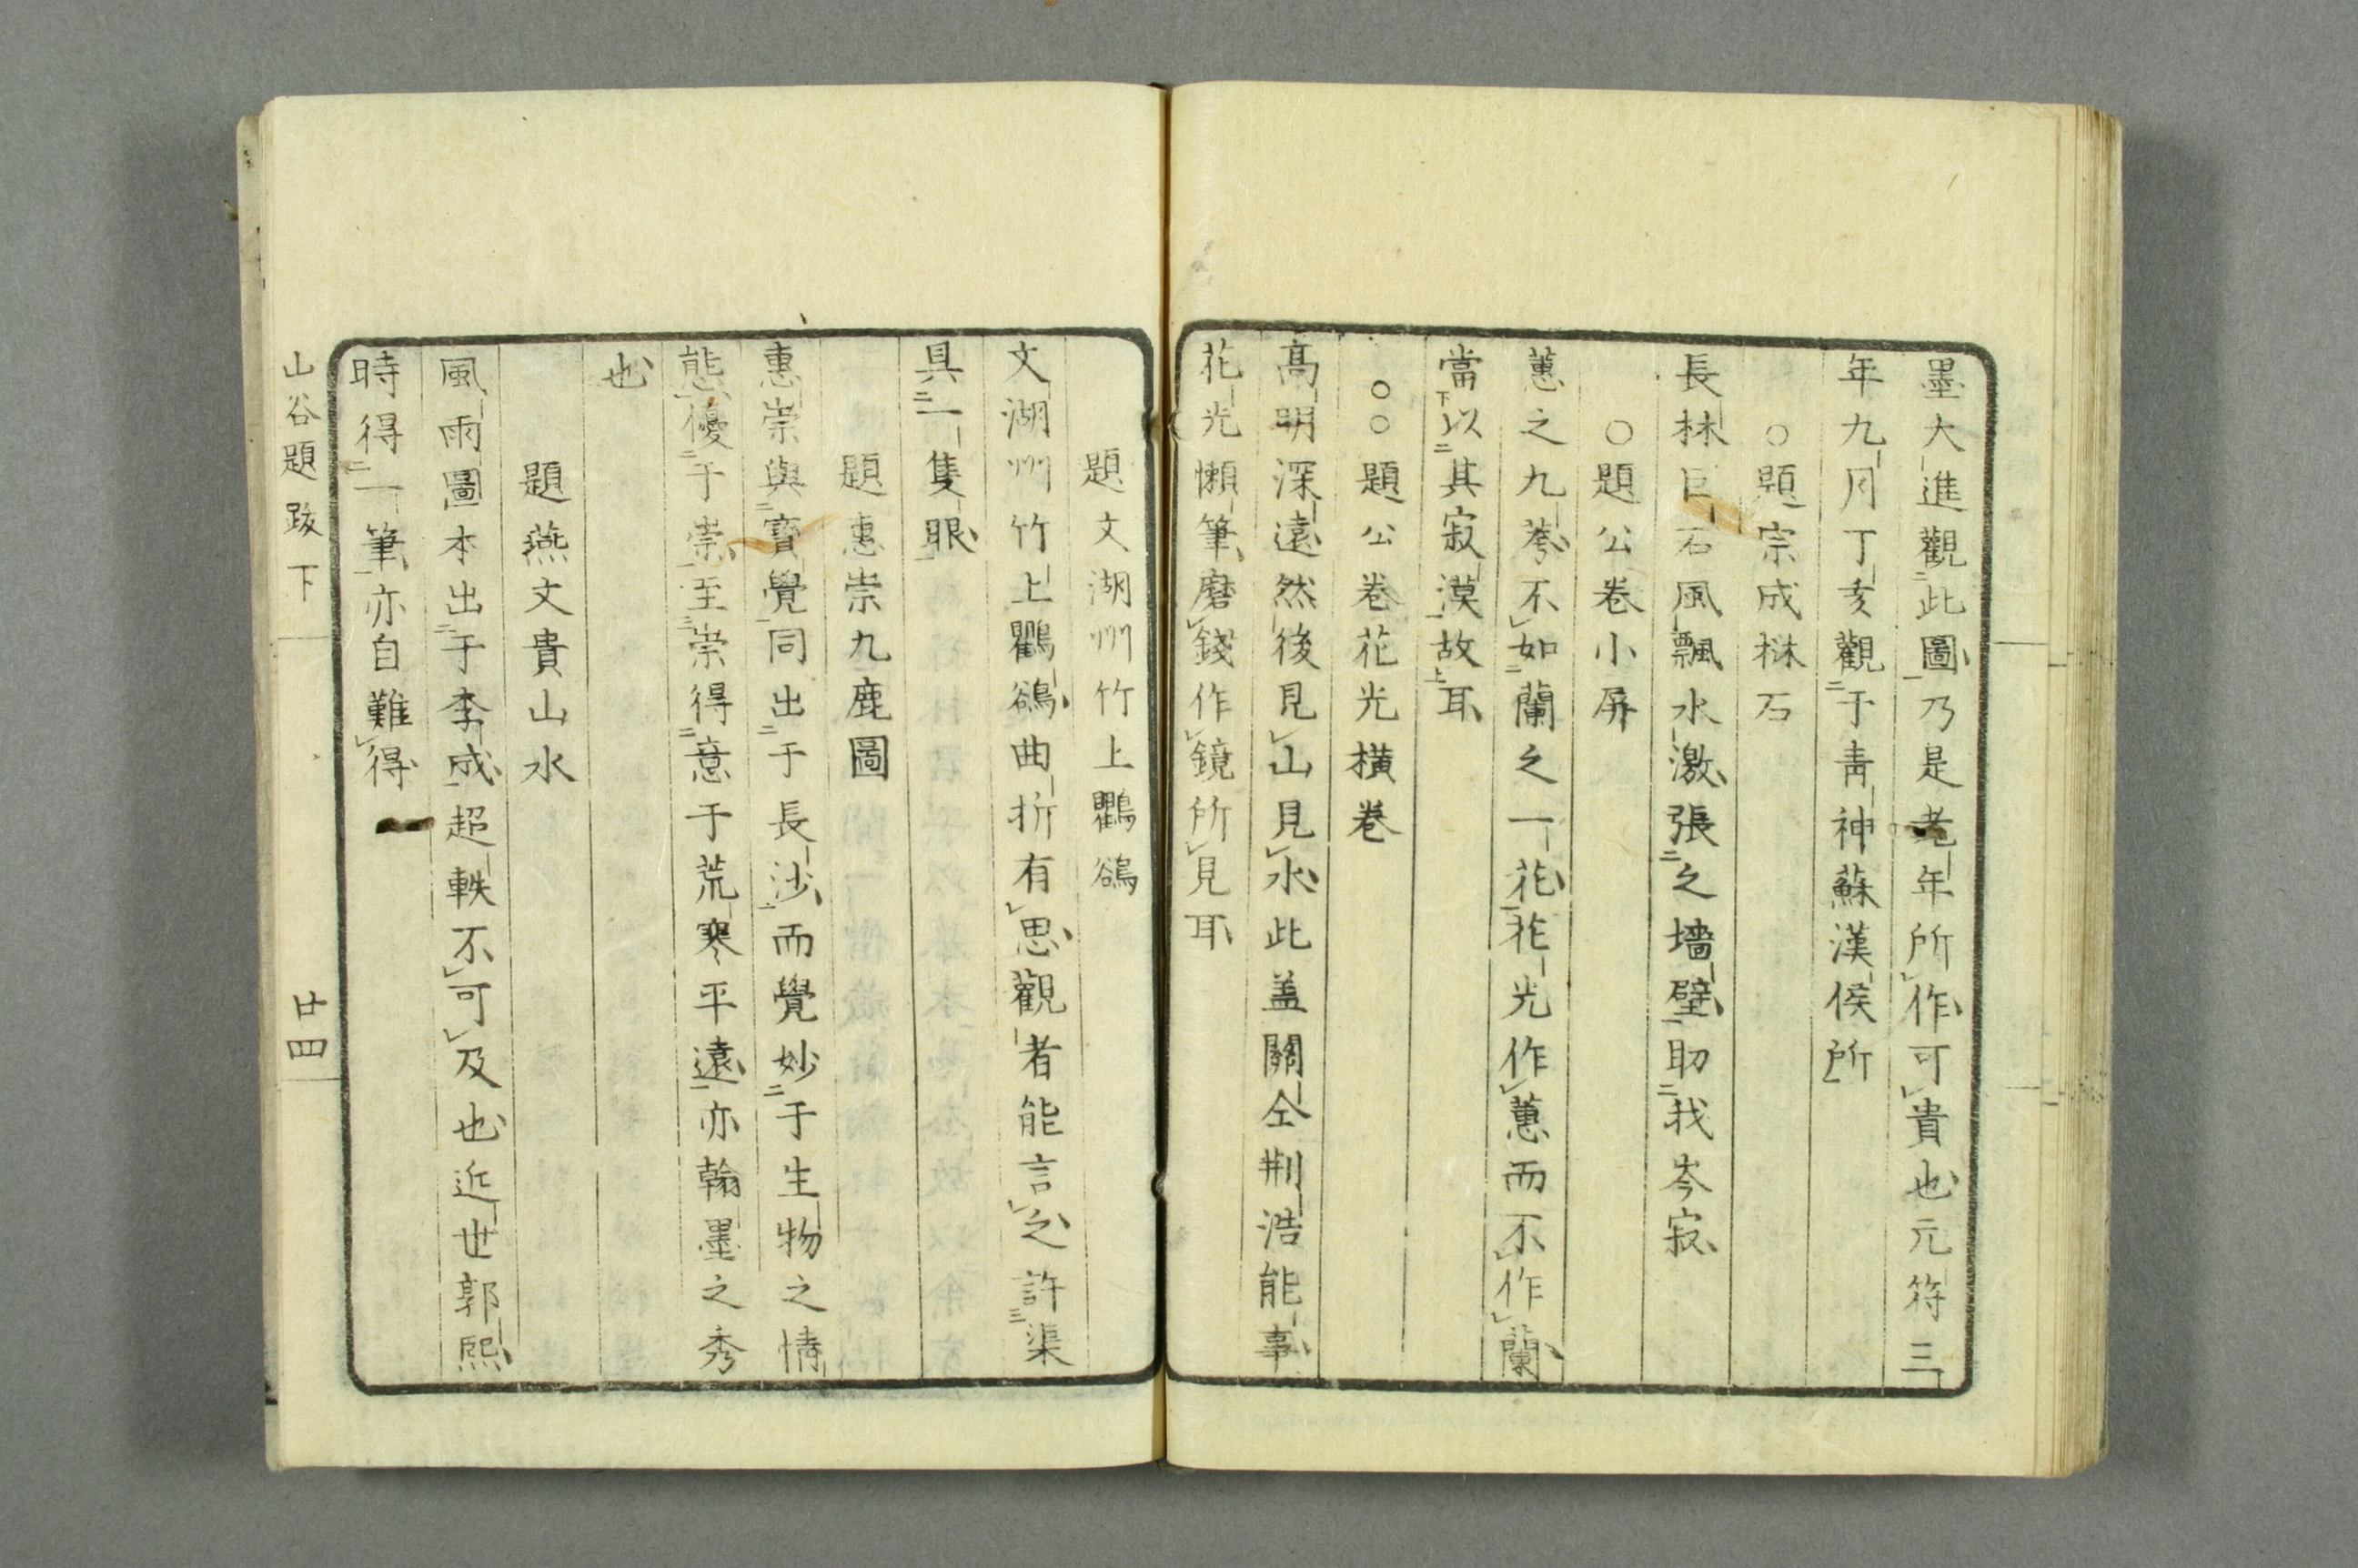 墨大進觀此圖乃是老年所作可貴也元符三
年九月丁亥觀于青神蘇漢侯所
○題宗成樹石
長林巨石風飄水激張之墻壁助我岑寂
○題公卷小屏
蕙之九蕚不如蘭之一花花光作蕙而不作蘭
當以其寂漠故耳
○○題公卷花光橫卷
高明深遠然後見山見水此盖關仝荆浩能事
花光懶筆磨錢作鏡所見耳
題文湖州竹上鸜鵒
文湖州竹上鸜鵒曲折有思觀者能言之許渠
具一隻眼
題惠崇九鹿圖
惠崇與寶覺同出于長沙而覺妙于生物之情
態優于崇至崇得意于荒寒平遠亦翰墨之秀
也
題燕文貴山水
風雨圖本出于李成超軼不可及也近世郭熙
時得一筆亦自難得
山谷題跋下
廿四